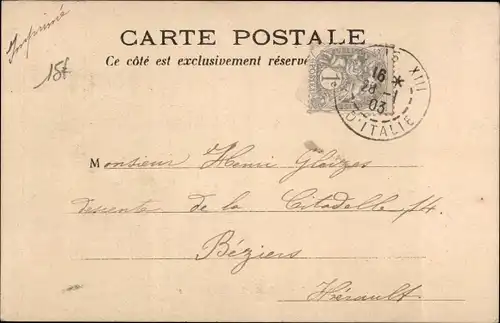 Imprimé
15f
CARTE POSTALE
Ce côté est exclusivement réservé
1c
XIII
16 *
28 - 1
03
D'ITALIE
Monsieur Henri Gleizes
descente de la Citadelle 14.
Béziers
Hérault.